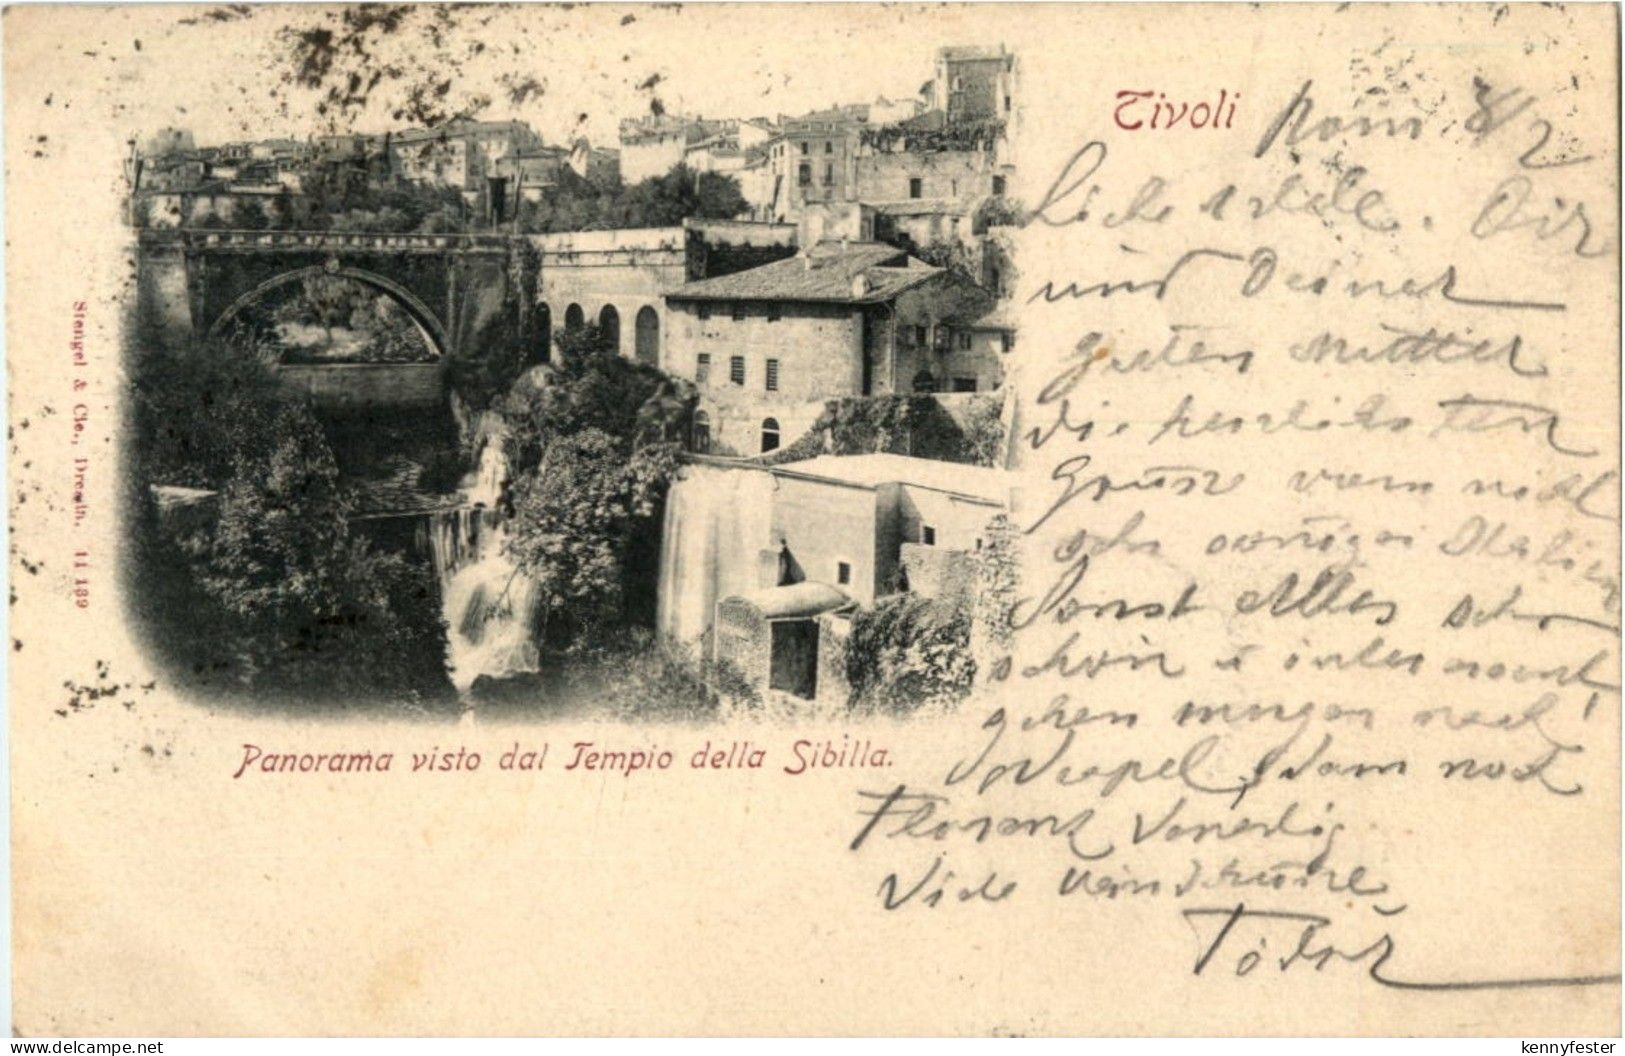 Tivoli
Rom 8/2
Liebe Adele. Dir
und Deiner
guten Mutter
die herzlichsten
Grüsse vom nicht
sehr sonnigen Italien
Sonst Alles sehr
schön u interessant
gehen morgen nach
Neapel, dann nach
Florenz Venedig
Viele
Panorama visto dal Tempio della Sibilla.
Stengel & Cie., Dresdn. 11 189
www.delcampe.net
kennyfester